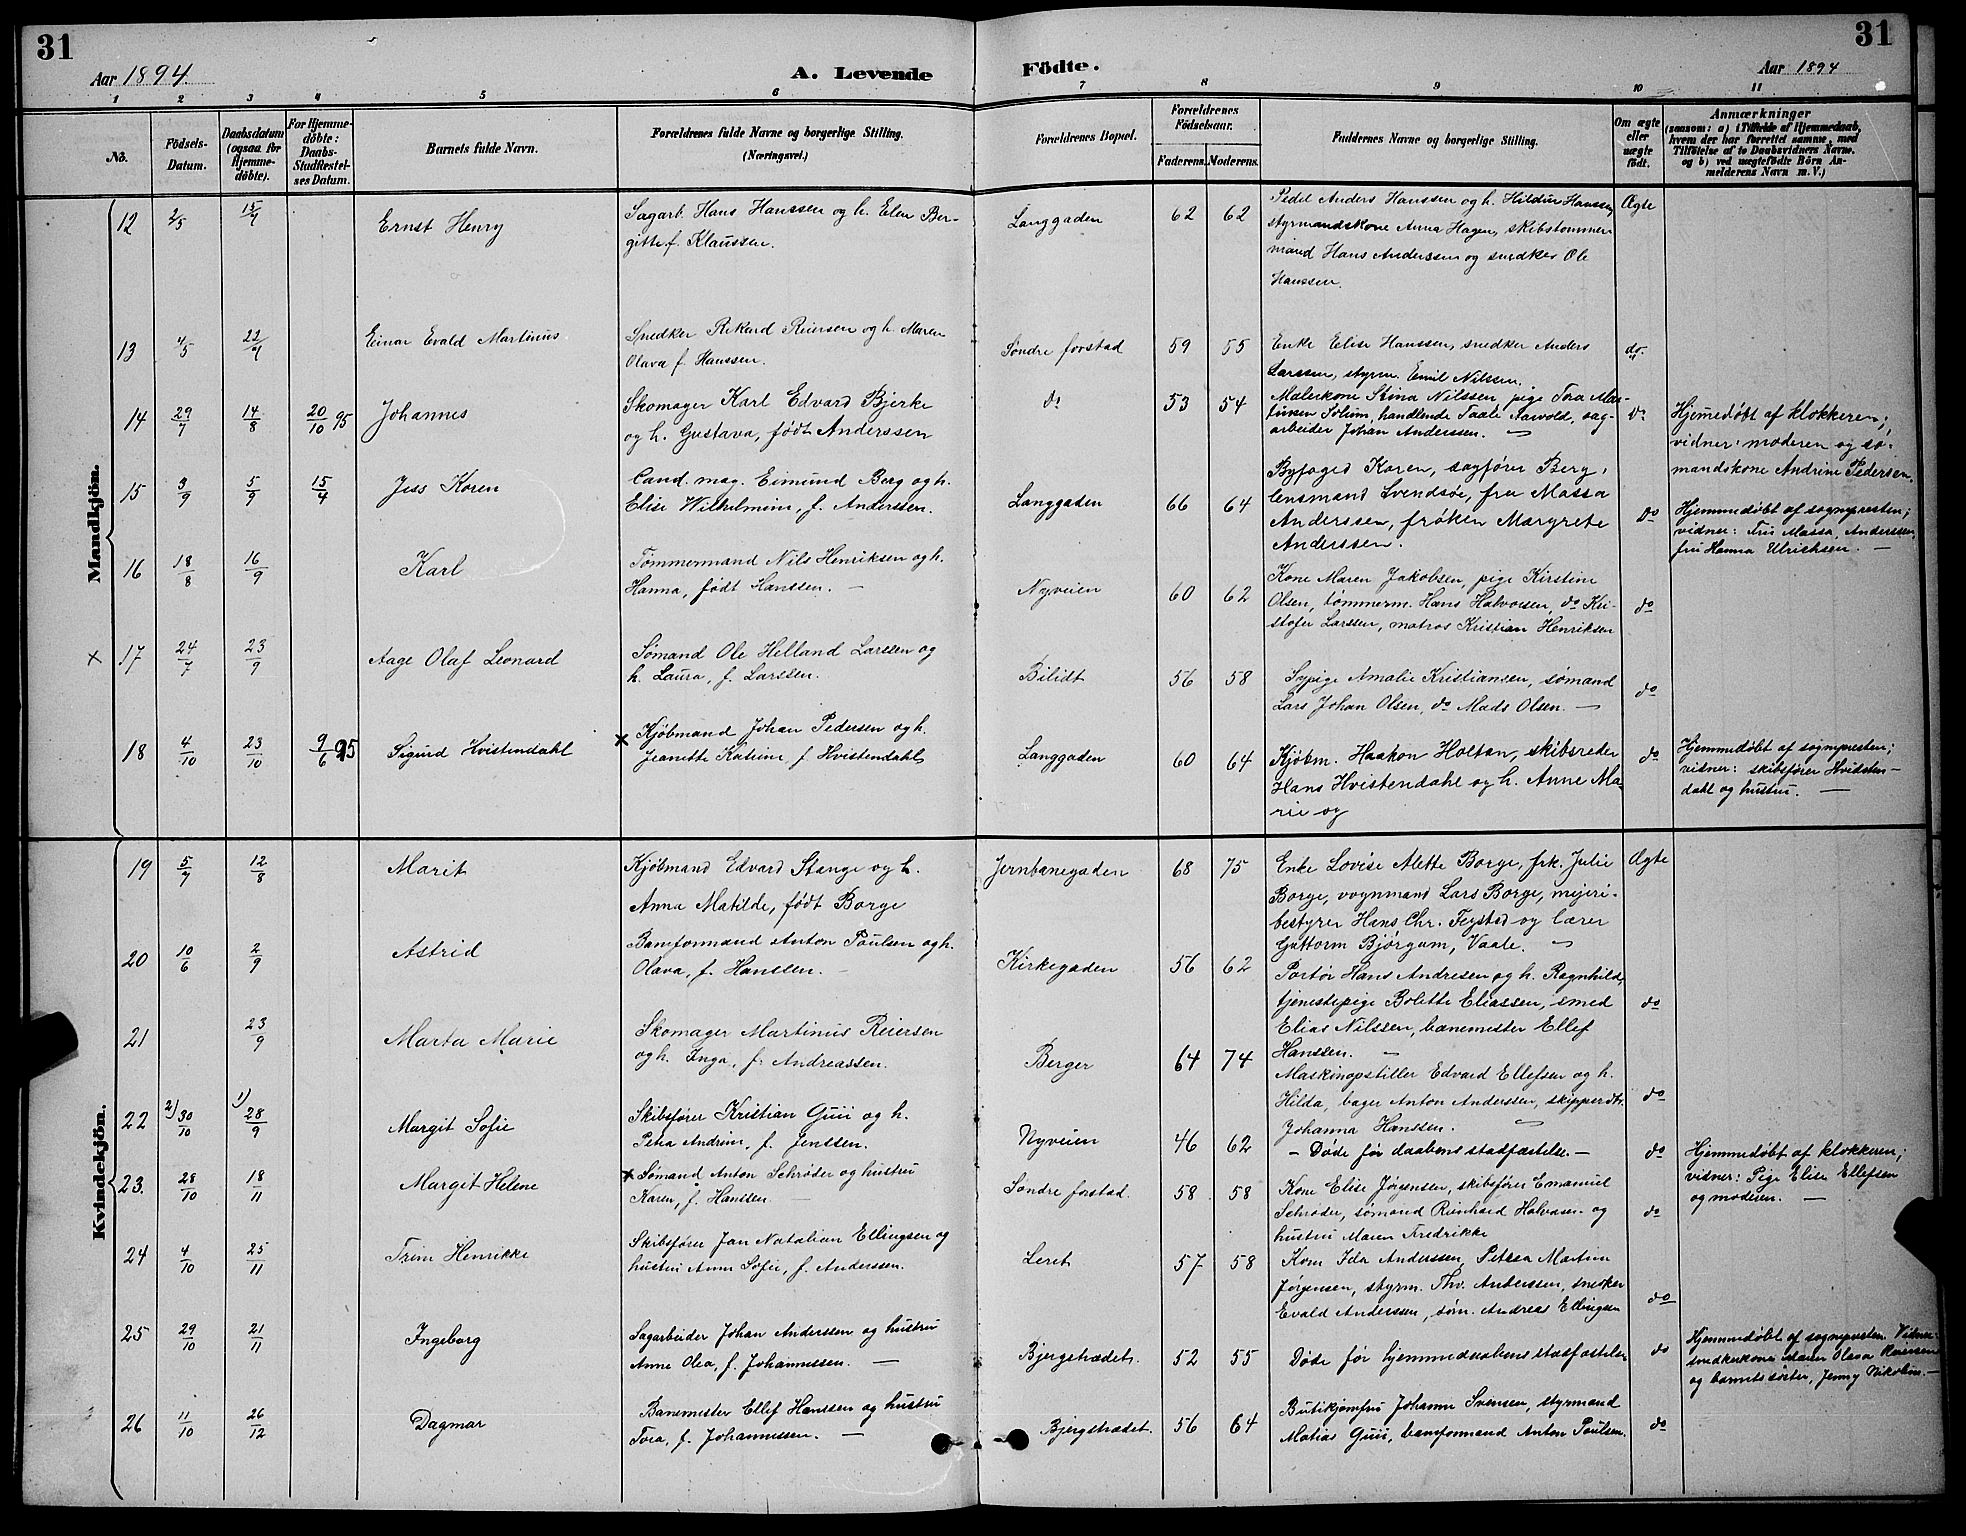 31
Aar 1894.
A. Levende Födte.
Aar 1894
31
1 2 3 4 5 6 7 8 9 10 11
No.
Födsels-Datum.
Daabsdatum (ogsaa for Hjemme-döbte).
For Hjemme-döbte: Daabs-Stadfæstel-ses Datum.
Barnets fulde Navn.
Forældrenes fulde Navne og borgerlige Stilling.
(Næringsvei.)
Forældrenes Bopæl.
Forældrenes Födselsaar.
Faderens. Moderens.
Faddernes Navne og borgerlige Stilling.
Om ægte eller uægte födt.
Anmærkninger
(saasom: a) i Tilfælde af Hjemmedaab, hvem der har forrettet samme, med Tilföielse af to Daabsvidners Navne, og b) ved uægtefödte Börn Anmelderens Navn m. V.)
Mandkjön.
12 2/5 15/7 Ernst Henry
Sagarb. Hans Hanssen og h. Elen Ber-
gitte f. Klaussen.
Langgaden 62 62
Pedel Anders Hanssen og h. Hildur Hanssen,
styrmandskone Anna Hagen, skibstømmer-
mand Hans Anderssen og snedker Ole
Hanssen.
Ægte
13 4/5 22/7 Einar Evald Martinus
Snedker Rikard Reiersen og h. Maren
Olava f. Hanssen.
Søndre forstad 59 55
Enke Elise Hanssen, snedker Anders
Larssen, styrm. Emil Nilssen.
do.
14 29/7 14/8 20/10 95 Johannes
Skomager Karl Edvard Bjerke
og h. Gustava, født Anderssen
do 53 54
Malerkone Stina Nilssen, pige Tora Mar-
tinsen Solum, handlende Taale Aarvold, sag-
arbeider Johan Anderssen. —
do
Hjemedøbt af klokkeren;
vidner: moderen og sø-
mandskone Andrine Pedersen.
15 3/9 5/9 15/4 Jess Koren
Cand. mag. Eimund Berg og h.
Elise Wilhelmine, f. Anderssen.
Langgaden 66 64
Byfoged Koren, sagfører Berg,
lensmand Svendsøe, fru Massa
Anderssen, frøken Margrete
Anderssen.
do
Hjemmedøbt af sognepresten;
vidner: Fru Massa Anderssen,
fru Hanna Ulrichsen. —
16 18/8 16/9 Karl
Tømmermand Nils Henriksen og h.
Hanna, født Hanssen. —
Nyveien 60 62
Kone Maren Jakobsen, pige Kirstine
Olsen, tømmerm. Hans Halvorsen, do Kri-
stofer Larssen, matros Kristian Henriksen
do
× 17 24/7 23/9 Aage Olaf Leonard
Sømand Ole Helland Larssen og
h. Laura, f. Larssen.
Bilidt 56 58
Sypige Amalie Kristiansen, sømand
Lars Johan Olsen, do Mads Olsen. —
do
18 4/10 23/10 9/6 95 Sigurd Hvistendahl
× Kjøbmand Johan Pedersen og h.
Jeanette Katrine f. Hvistendahl
Langgaden 60 64
Kjøbm. Haakon Holtan, skibsreder
Hans Hvistendahl og h. Anne Ma-
rie og
do
Hjemmedøbt af sognpresten;
vidner: skibsfører Hvidsten-
dahl og hustru. —
Kvindekjön.
19 5/7 12/8 Marit
Kjøbmand Edvard Stange og h.
Anna Matilde, født Borge
Jernbanegaden 68 75
Enke Lovise Alette Borge, frk. Julie
Borge, vognmand Lars Borge, mejeri-
bestyrer Hans Chr. Feystad og lærer
Guttorm Bjørgum, Vaale. —
Ægte
20 10/6 2/9 Astrid
Baneformand Anton Poulsen og h.
Olava, f. Hanssen. —
Kirkegaden 56 62
Portør Hans Andresen og h. Ragnhild,
tjenestepige Bolette Eliassen, smed
Elias Nilssen, banemester Ellef
Hanssen. —
do
21 23/9 Marta Marie
Skomager Martinus Reiersen
og h. Inga, f. Andreassen.
Berger 64 74
Maskinopstiller Edvard Ellefsen og h.
Hilda, bager Anton Anderssen, skipperdtr.
Johanna Hanssen. —
do
22 2) 30/10 1) 28/9 Margit Sofie
Skibsfører Kristian Guii og h.
Petra Andrine, f. Jenssen.
Nyveien 46 62
— Døde før daabens stadfæstelse —
do
Hjemmedøbt af klokkeren;
vidner: Pige Elise Ellefsen
og moderen. —
23. 28/10 18/11 Margit Helene
× Sømand Anton Schrøder og hustru
Karen, f. Hanssen —
Søndre forstad. 58 58
Kone Elise Jørgensen, skibsfører Emanuel
Schrøder, sømand Reinhard Halvorsen og
hustru Maren Fredrikke
do
24 4/10 25/11 Trine Henrikke
Skibsfører Jan Natalian Ellingsen og
hustru Anna Sofie, f. Anderssen.
Leret 57 58
Kone Ida Anderssen, Petrea Martine
Jørgensen, styrm. Thv. Anderssen, snedker
Evald Anderssen, søm. Andreas Ellingsen
do
25 29/10 21/11 Ingeborg
Sagarbeider Johan Anderssen og hustru
Anne Olea, f. Johannessen. —
Bjergstrædet. 52 55
Døde før hjemmedaabens stadfæstelse
do
Hjemmedøbt af sognpresten. Vidner:
snedkerkone Maren Olava Reiersen
og barnets søster, Jenny Nikoline. —
26 11/10 26/12 Dagmar
Banemester Ellef Hanssen og hustru
Tora, f. Johannessen. —
Bjergstrædet. 56 64
Butikjomfru Johanne Svensen, styrmand
Matias Guii, baneformand Anton Poulsen.
do